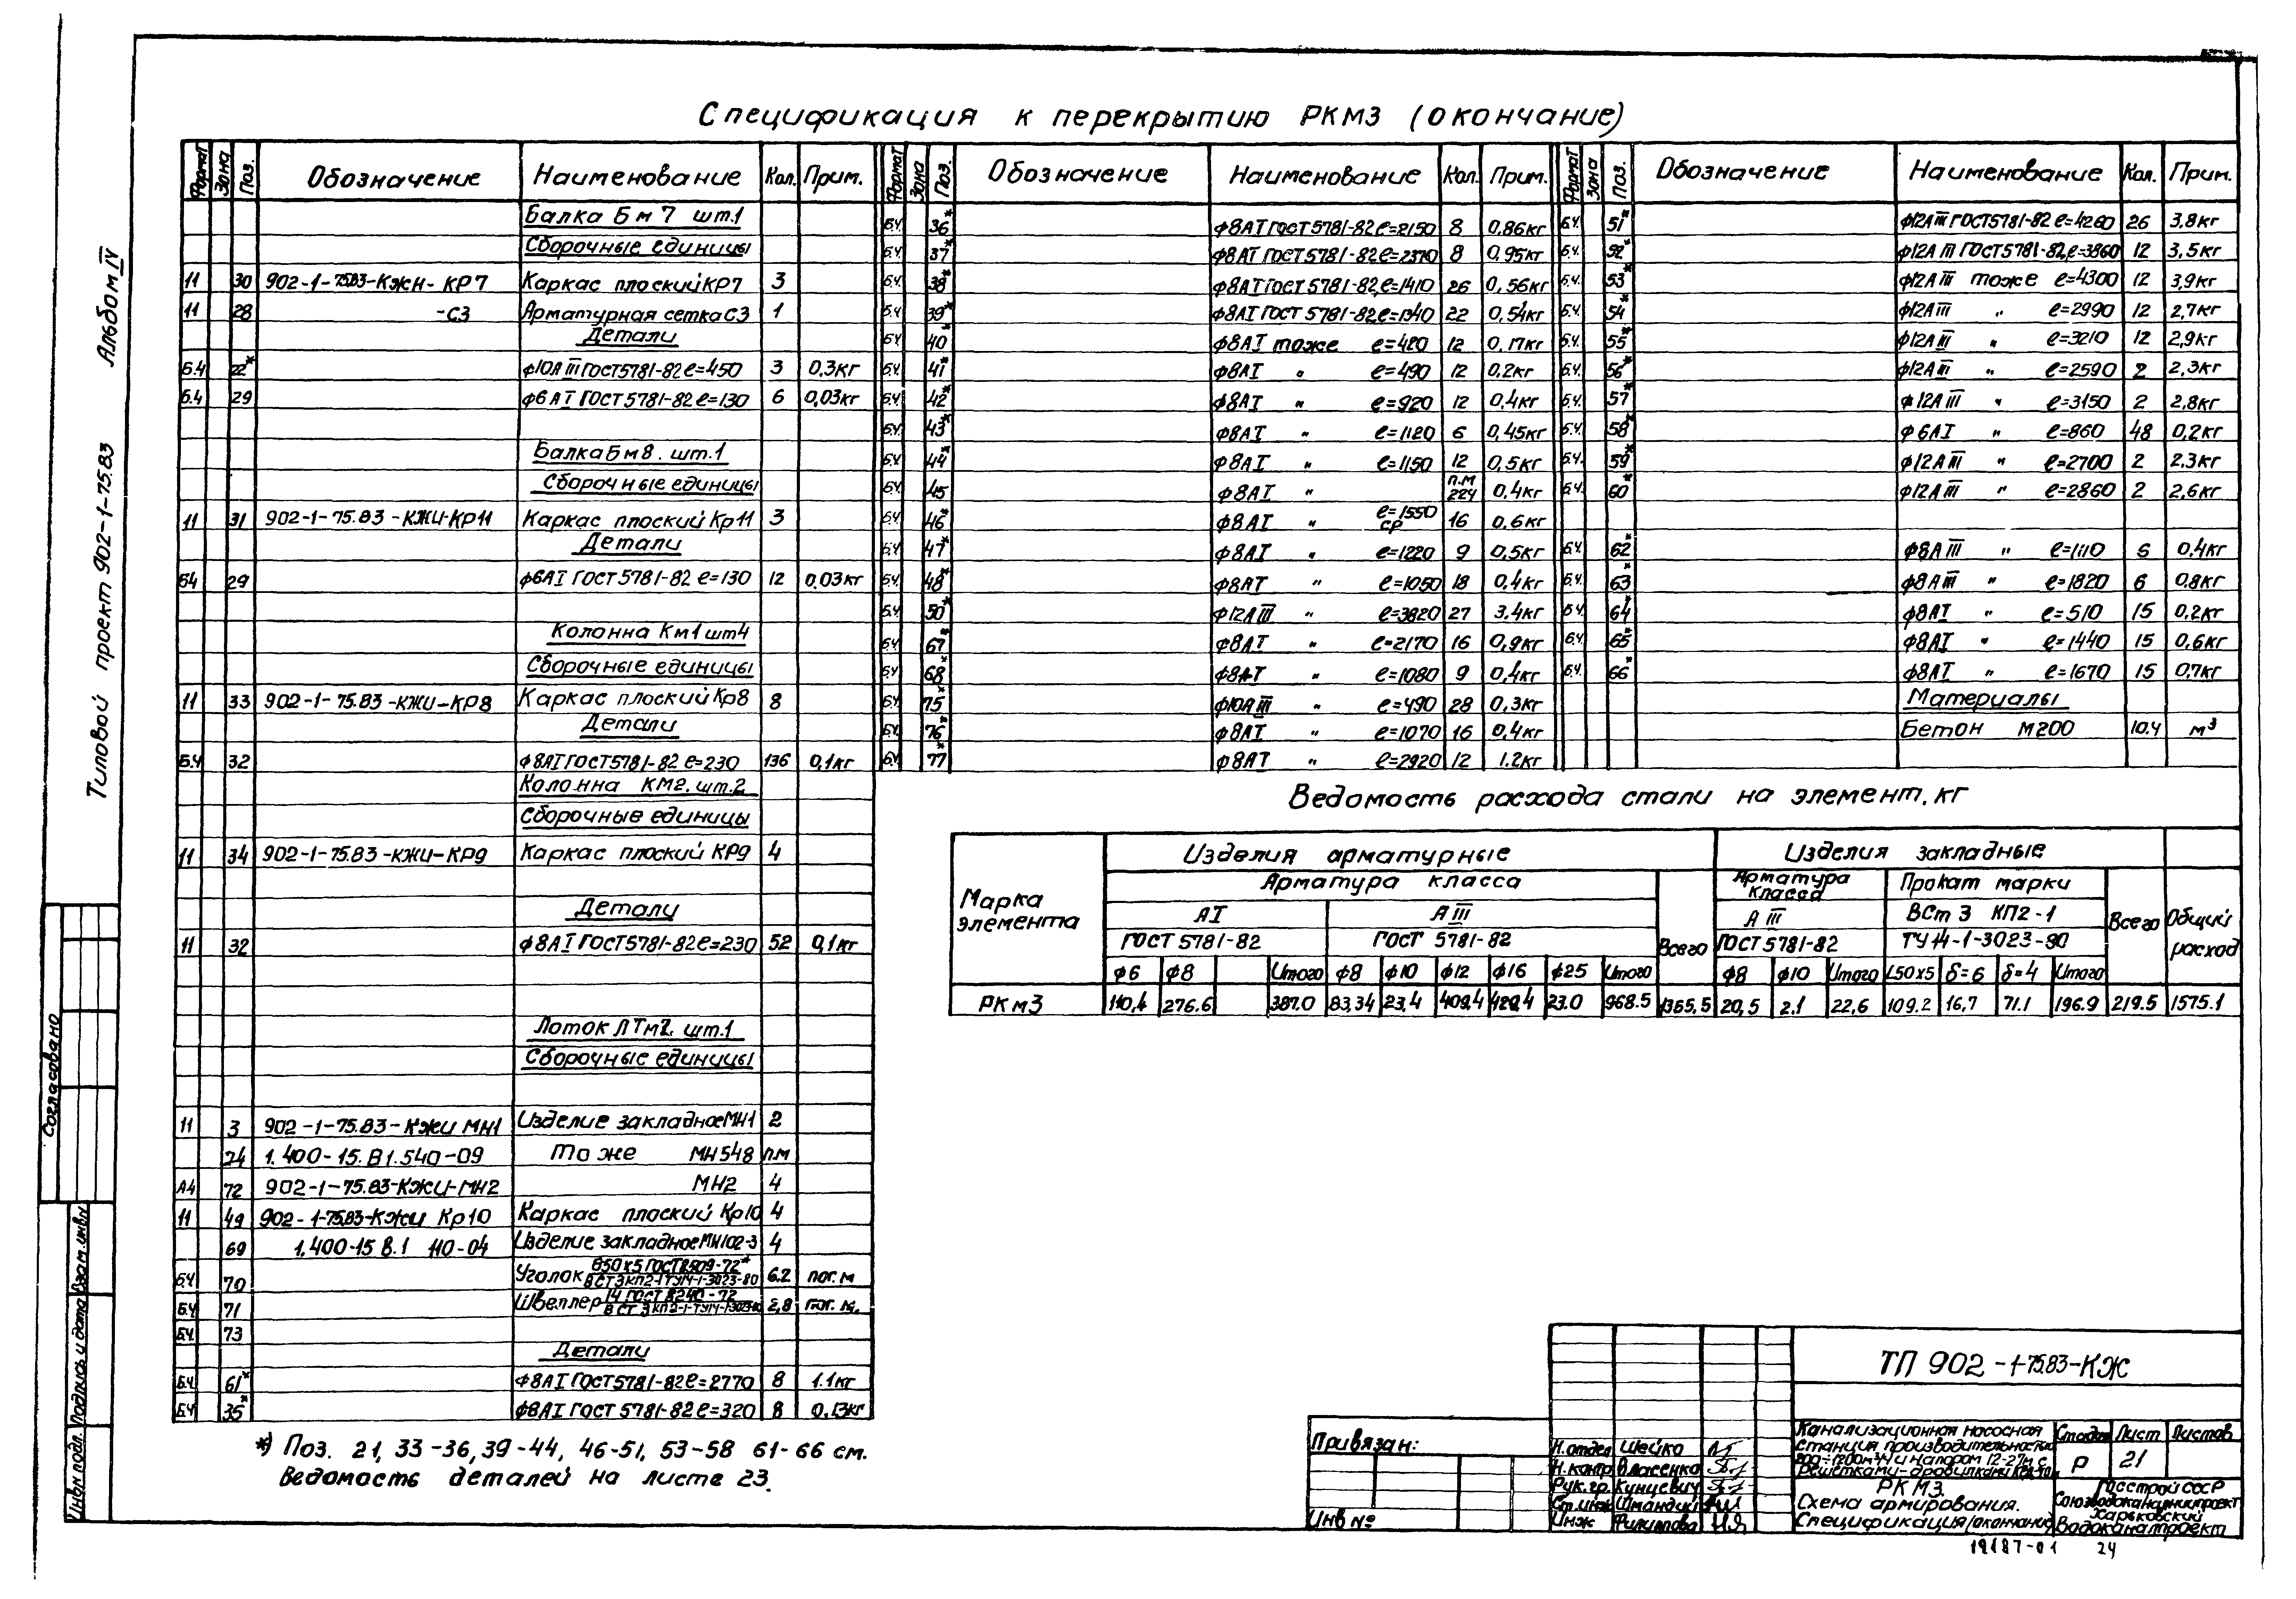 Спецификация к перекрытию РКМ3 (окончание)
Формат Зона Поз. Обозначение Наименование Кол. Прим.
Балка Бм7 шт.1
Сборочные единицы
11 30 902-1-75.83-КЖИ-КР7 Каркас плоский КР7 3
11 28 -С3 Арматурная сетка С3 1
Детали
Б.4 22* ф10АIII ГОСТ5781-82 ℓ=450 3 0,3кг
Б.4 29 ф6АI ГОСТ5781-82 ℓ=130 6 0,03кг
Балка Бм8. шт.1
Сборочные единицы
11 31 902-1-75.83-КЖИ-Кр11 Каркас плоский Кр11 3
Детали
Б4 29 ф6АI ГОСТ5781-82 ℓ=130 12 0,03кг
Колонна Км1 шт4
Сборочные единицы
11 33 902-1-75.83-КЖИ-КР8 Каркас плоский Кр8 8
Детали
Б.4 32 ф8АI ГОСТ5781-82 ℓ=230 136 0,1кг
Колонна КМ2. шт.2
Сборочные единицы
11 34 902-1-75.83-КЖИ-КР9 Каркас плоский КР9 4
Детали
11 32 ф8АI ГОСТ5781-82 ℓ=230 52 0,1кг
Лоток ЛТм2. шт.1
Сборочные единицы
11 3 902-1-75.83-КЖИ МН1 Изделие закладное МН1 2
24 1.400-15.В1.540-09 То же МН548 п.м
А4 72 902-1-75.83-КЖИ-МН2 МН2 4
11 49 902-1-75.83-КЖИ Кр10 Каркас плоский Кр10 4
69 1.400-15 В.1 110-04 Изделие закладное МН102-3 4
Б.4 70 Уголок В50х5 ГОСТ8509-72* 6.2 пог.м
ВСТ3КП2-1 ТУ14-1-3023-80
Б.4 71 Швеллер 14 ГОСТ 8240-72 2,8 пог. м.
ВСТ 3 КП2-1-ТУ14-1-3023-80
Б.4 73
Детали
Б.4 61* ф8АI ГОСТ5781-82 ℓ=2770 8 1.1кг
Б.4 35* ф8АI ГОСТ 5781-82 ℓ=320 8 0,13кг
*) Поз. 21, 33-36, 39-44, 46-51, 53-58 61-66 см.
Ведомость деталей на листе 23.
Формат Зона Поз. Обозначение Наименование Кол. Прим.
Б.4 36* ф8АI ГОСТ5781-82 ℓ=2150 8 0,86кг
Б.4 37* ф8АI ГОСТ5781-82 ℓ=2370 8 0,95кг
Б.4 38* ф8АI ГОСТ5781-82, ℓ=1410 26 0,56кг
Б.4 39* ф8АI ГОСТ 5781-82 ℓ=1340 22 0,54кг
Б.4 40* ф8АI тоже ℓ=420 12 0,17кг
Б.4 41* ф8АI " ℓ=490 12 0,2кг
Б.4 42* ф8АI " ℓ=920 12 0,4кг
Б.4 43* ф8АI " ℓ=1120 6 0,45кг
Б.4 44* ф8АI " ℓ=1150 12 0,5кг
Б.4 45 ф8АI " п.м 224 0,4кг
Б.4 46* ф8АI " ℓ=1550 ср 16 0,6кг
Б.4 47* ф8АI " ℓ=1220 9 0,5кг
Б.4 48* ф8АI " ℓ=1050 18 0,4кг
Б.4 50* ф12АIII " ℓ=3820 27 3.4кг
Б.4 67* ф8АI " ℓ=2170 16 0,9кг
Б.4 68* ф8АI " ℓ=1080 9 0,4кг
Б.4 75* ф10АIII " ℓ=490 28 0,3кг
Б.4 76* ф8АI " ℓ=1070 16 0,4кг
Б.4 77* ф8АI " ℓ=2920 12 1.2кг
Формат Зона Поз. Обозначение Наименование Кол. Прим.
Б.4 51* ф12АIII ГОСТ5781-82 ℓ=4260 26 3,8кг
Б.4 52* ф12АIII ГОСТ5781-82, ℓ=3860 12 3,5кг
Б.4 53* ф12АIII тоже ℓ=4300 12 3,9кг
Б.4 54* ф12АIII " ℓ=2990 12 2,7кг
Б.4 55* ф12АIII " ℓ=3210 12 2,9кг
Б.4 56* ф12АIII " ℓ=2590 2 2,3кг
Б.4 57* ф12АIII " ℓ=3150 2 2,8кг
Б.4 58* ф6АI " ℓ=860 48 0,2кг
Б.4 59* ф12АIII " ℓ=2700 2 2.3кг
Б.4 60* ф12АIII " ℓ=2860 2 2,6кг
Б.4 62* ф8АIII " ℓ=1110 6 0,4кг
Б.4 63* ф8АIII " ℓ=1820 6 0,8кг
Б.4 64* ф8АI " ℓ=510 15 0,2кг
Б.4 65* ф8АI " ℓ=1440 15 0,6кг
Б.4 66* ф8АI " ℓ=1670 15 0,7кг
Материалы
Бетон М200 10.4 м³
Ведомость расхода стали на элемент, кг
Марка элемента Изделия арматурные Изделия закладные Общий расход
Арматура класса Всего Арматура класса Прокат марки Всего
АI АIII АIII ВСт 3 КП2-1
ГОСТ 5781-82 ГОСТ 5781-82 ГОСТ 5781-82 ТУ14-1-3023-80
ф6 ф8 Итого ф8 ф10 ф12 ф16 ф25 Итого ф8 ф10 Итого L50х5 δ=6 δ=4 Итого
РКм3 110,4 276.6 387.0 83,34 23,4 409.4 429.4 23.0 968.5 1355,5 20,5 2.1 22,6 109.2 16,7 71.1 196.9 219.5 1575.1
Привязан:
Инв №
Н.отдел Шейко
Н.контр Власенко
Рук.гр. Кунцевич
Ст.инж
Инж Филиппова
ТП 902-1-75.83-КЖ
Канализационная насосная
станция производительностью
200÷1200м³/ч и напором 12-27м с
решетками-дробилками
РКМ3.
Схема армирования.
Спецификация (окончание)
Стадия Лист Листов
Р 21
Госстрой СССР
Союзводоканалниипроект
Харьковский
Водоканалпроект
19187-01 24
Типовой проект 902-1-75.83 Альбом IV
Согласовано
Инв.№ подл. Подпись и дата Взам.инв.№